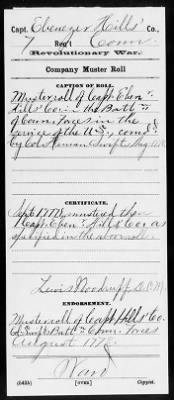 Capt. Ebenezer Hills' Co.,
7 Reg't Conn
Revolutionary War.
Company Muster Roll
CAPTION OF ROLL.
Muster roll of Capt. Eben r
Hills' Co. in the Batt n
of Conn. forces in the
Service of the U.S., com'd
by Col. Heman Swift, Aug.
CERTIFICATE.
Sept. 1778, mustered then
Capt. Eben r Hills' Co. as
specified in the above roll.
Lewis Woodruff
ENDORSEMENT.
Muster roll of Capt. Hills' Co.
Col. Swift's Batt n Conn. forces
August 1778.
[OVER] Copyist.